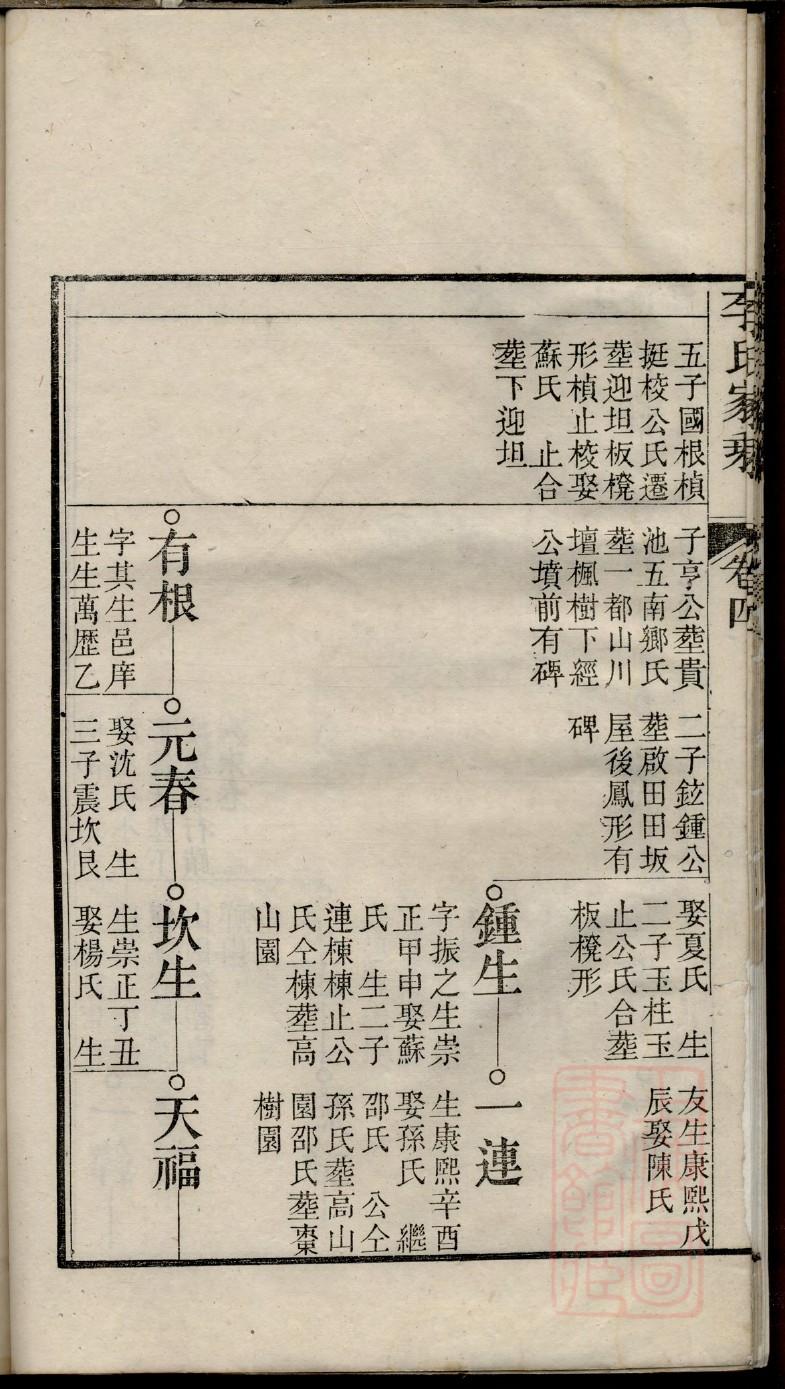 李氏家乘
卷四
五子國根楨
挺校公氏遷
塟迎坦板櫈
形楨止校娶
蘇氏　止合
塟下迎坦
子亨公塟貴
池五南鄉氏
塟一都山川
壇楓樹下經
公墳前有碑
二子鉉鍾公
塟啟田田坂
屋後鳳形有
碑
娶夏氏　生
二子玉柱玉
止公氏合塟
板櫈形
友生康熙戊
辰娶陳氏
鍾生
字振之生崇
正甲申娶蘇
氏　生二子
連棟棟止公
氏仝棟塟高
山園
一連
生康熙辛酉
娶孫氏　繼
邵氏　公仝
孫氏塟高山
園邵氏塟棗
樹園
有根
字其生邑庠
生生萬歷乙
元春
娶沈氏　生
三子震坎艮
坎生
生崇正丁丑
娶楊氏　生
天福